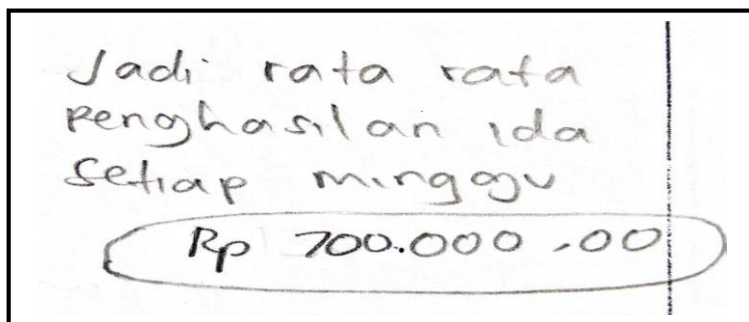 Jadi rata rata
penghasilan ida
setiap minggu
Rp 700.000,00